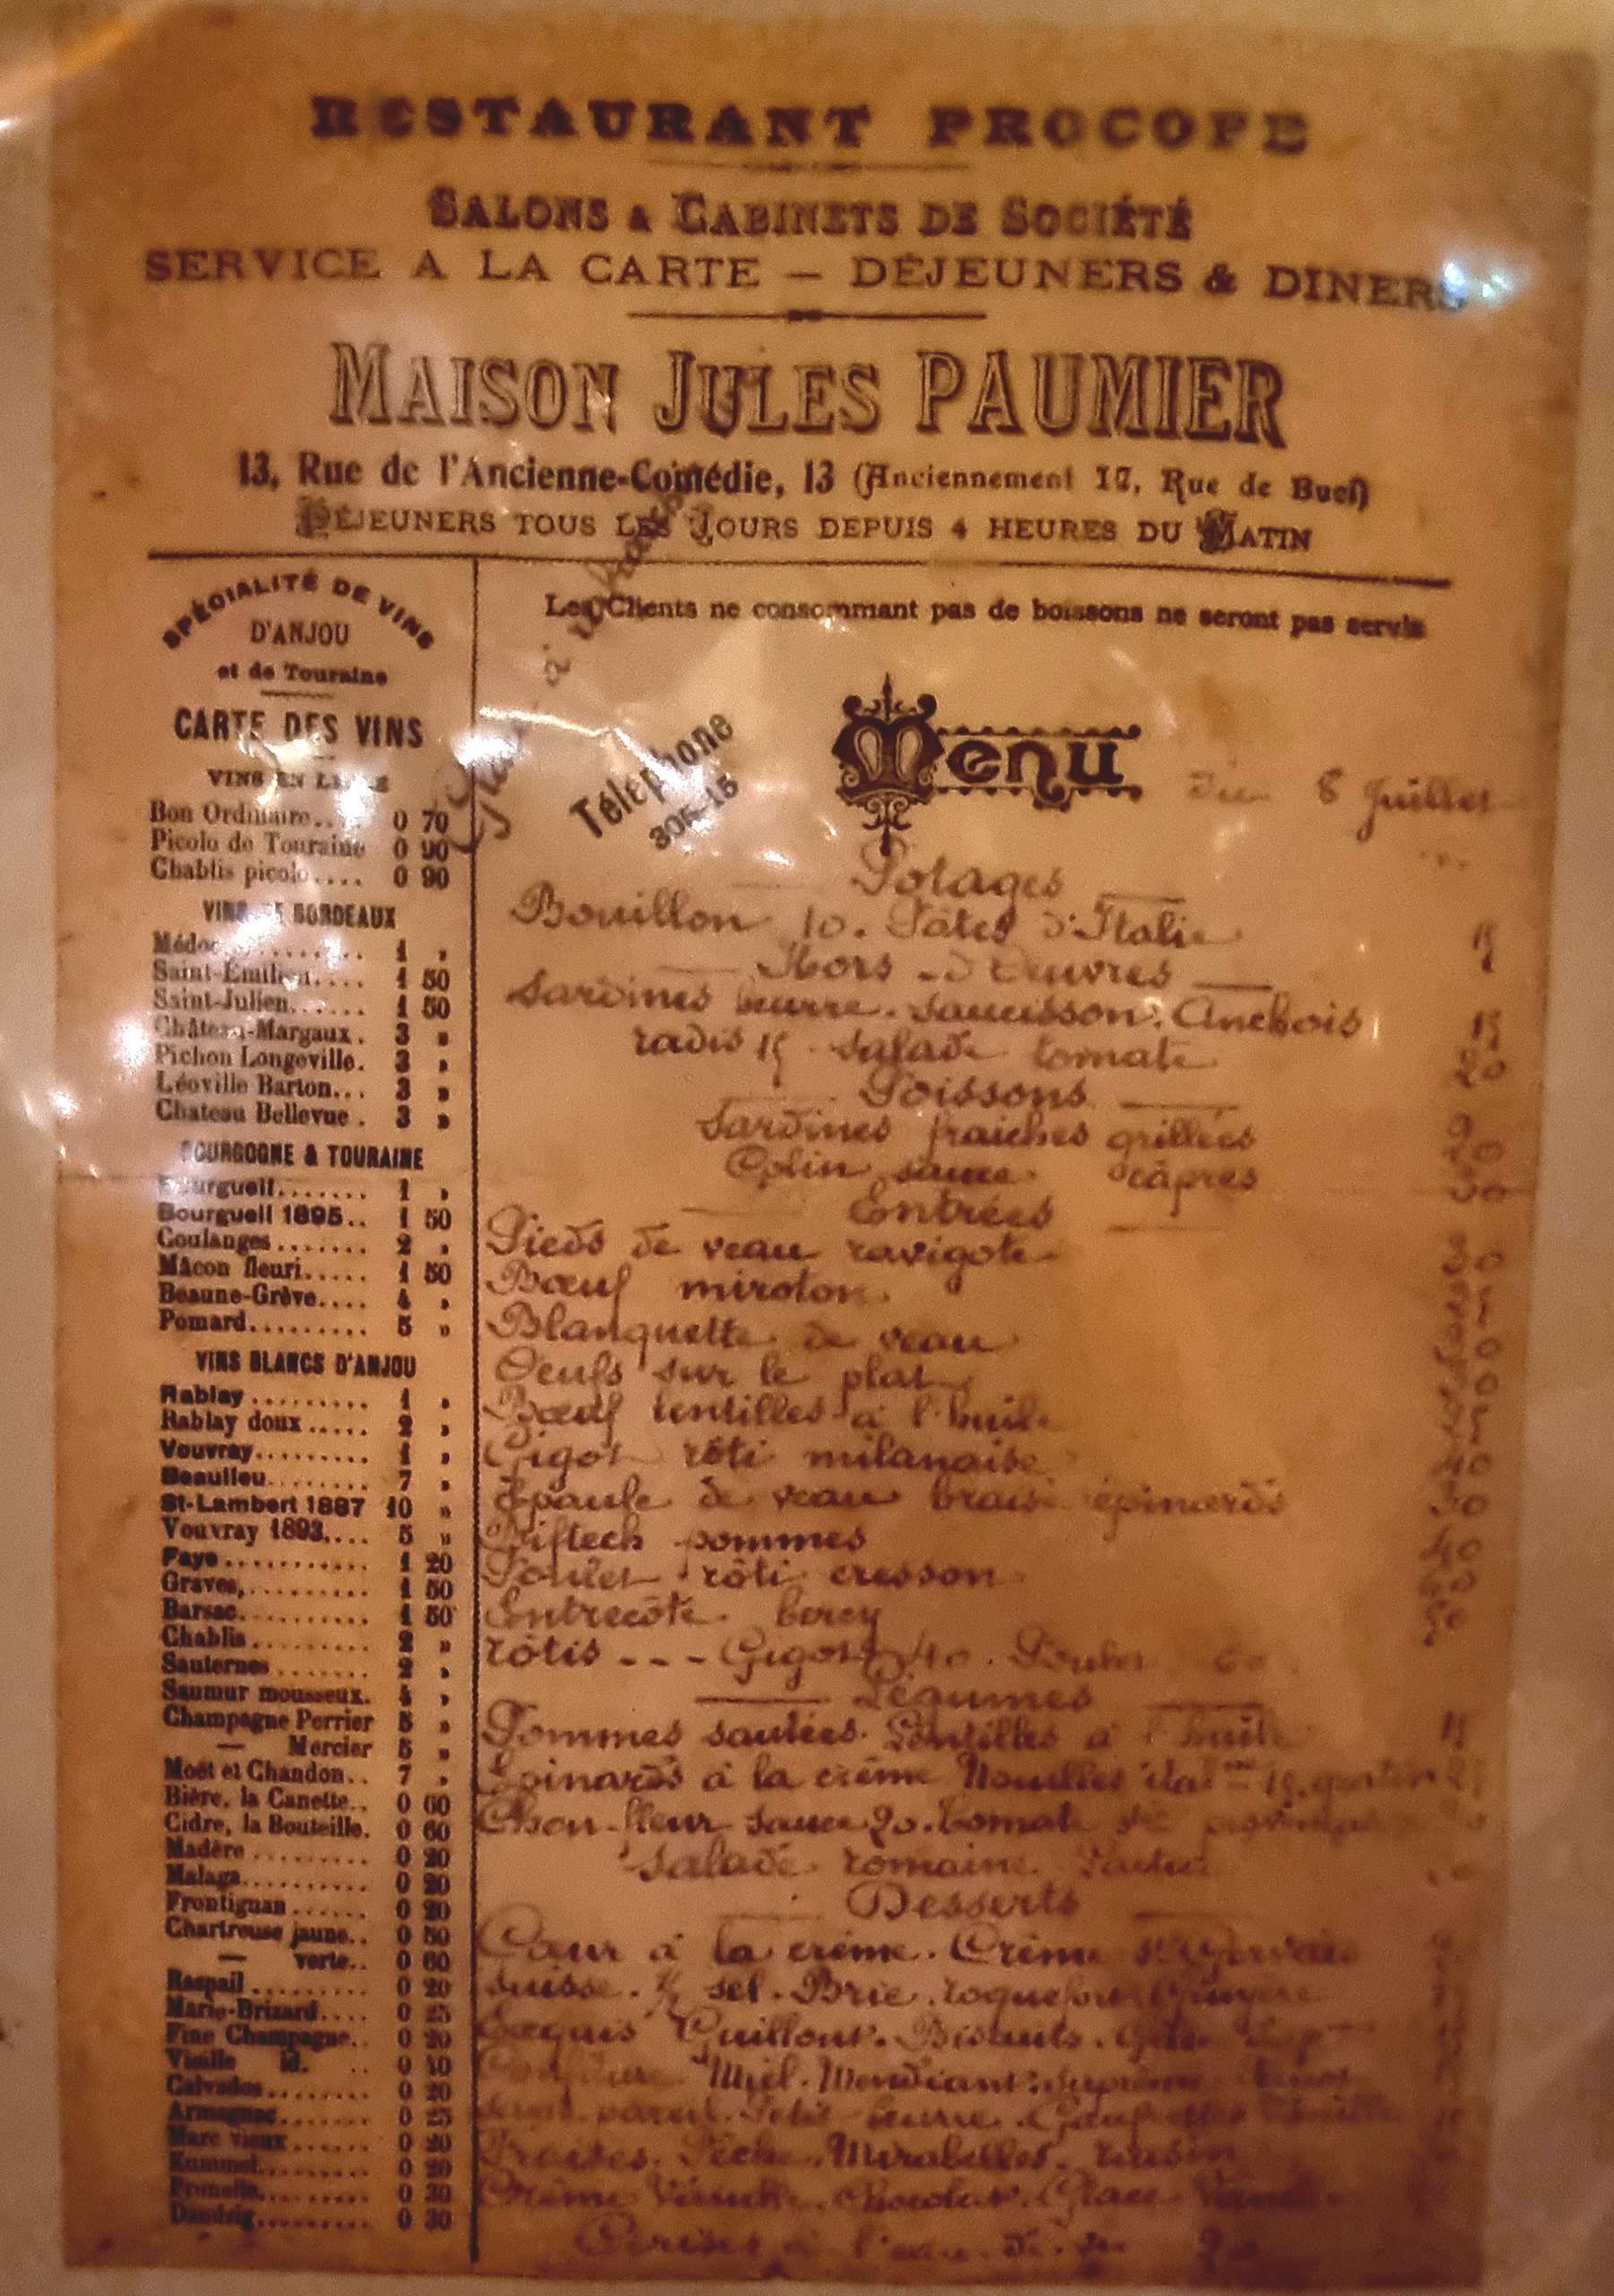 RESTAURANT PROCOPE
SALONS & CABINETS DE SOCIÉTÉ
SERVICE A LA CARTE — DÉJEUNERS & DINERS
MAISON JULES PAUMIER
13, Rue de l'Ancienne-Comédie, 13 (Anciennement 17, Rue de Buci)
DÉJEUNERS TOUS LES JOURS DEPUIS 4 HEURES DU MATIN
SPÉCIALITÉ DE VINS
D'ANJOU
et de Touraine
CARTE DES VINS
VINS EN
Bon Ordinaire.... 0 70
Picolo de Touraine 0 90
Chablis picolo.... 0 90
VINS DE BORDEAUX
Médoc.......... 1 »
Saint-Émilion.... 1 50
Saint-Julien...... 1 50
Château-Margaux. 3 »
Pichon Longeville. 3 »
Léoville Barton... 3 »
Chateau Bellevue. 3 »
BOURGOGNE & TOURAINE
Bourgueil........ 1 »
Bourgueil 1895.. 1 50
Coulanges........ 2 »
Mâcon fleuri..... 1 50
Beaune-Grève.... 4 »
Pomard......... 5 »
VINS BLANCS D'ANJOU
Rablay......... 1 »
Rablay doux..... 2 »
Vouvray......... 1 »
Beaulieu........ 7 »
St-Lambert 1887 10 »
Vouvray 1893.... 5 »
Faye............ 1 20
Graves,.......... 1 50
Barsac.......... 1 50
Chablis......... 2 »
Sauternes....... 2 »
Saumur mousseux. 4 »
Champagne Perrier 5 »
— Mercier 5 »
Moët et Chandon.. 7 »
Bière, la Canette.. 0 60
Cidre, la Bouteille. 0 60
Madère......... 0 20
Malaga.......... 0 20
Frontignan...... 0 20
Chartreuse jaune.. 0 50
— verte.. 0 60
Raspail.......... 0 20
Marie-Brizard.... 0 25
Fine Champagne.. 0 20
Vieille id. .. 0 40
Calvados........ 0 20
Armagnac....... 0 25
Marc vieux...... 0 20
Kummel......... 0 20
Prunelle......... 0 30
Dantzig.......... 0 30
Les Clients ne consommant pas de boissons ne seront pas servis
Téléphone
305-15
Menu du 8 Juillet
Potages
Bouillon 10. Pâtes d'Italie 15
Hors-d'Oeuvres
Sardines beurre. saucisson. Anchois 15
radis 15. salade tomate 20
Poissons
Sardines fraiches grillées
Colin sauce câpres
Entrées
Pieds de veau ravigote
Bœuf miroton.
Blanquette de veau
Oeufs sur le plat
Bœuf lentilles à l'huile
Gigot rôti milanaise 40
Epaule de veau braisé épinards 50
Biftech pommes 40
Poulet rôti cresson 60
Entrecôte bercy 50
rôtis --- Gigot 40. Poulet 60
Légumes
Pommes sautées. Lentilles à l'huile 15
Epinards à la crême Nouilles 15. gratin
Chou-fleur sauce 20. tomate
Salade romaine.
Desserts
Cœur à la crême. Crême
Suisse. ½ sel. Brie. roquefort. Gruyère
Guillout. Biscuits.
Confiture Miel. Mendiant.
Petit beurre.
Fraises. Pêche. Mirabelles. raisin
Crême Vanille. chocolat. Glace Vanille
Cerises à l'eau de vie 20